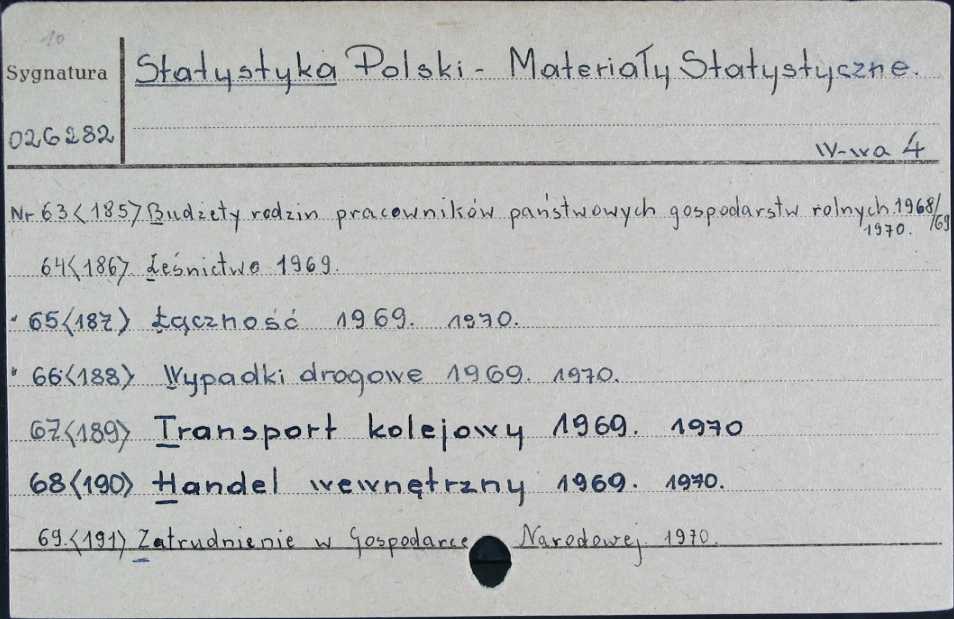 10
Sygnatura
026282
Statystyka Polski - Materiały Statystyczne.
W-wa 4
Nr 63<185> Budżety rodzin pracowników państwowych gospodarstw rolnych 1968/69
1970.
64<186> Leśnictwo 1969.
65<187> Łączność 1969. 1970.
66<188> Wypadki drogowe 1969. 1970.
67<189> Transport kolejowy 1969. 1970
68<190> Handel wewnętrzny 1969. 1970.
69.<191> Zatrudnienie w Gospodarce Narodowej 1970.